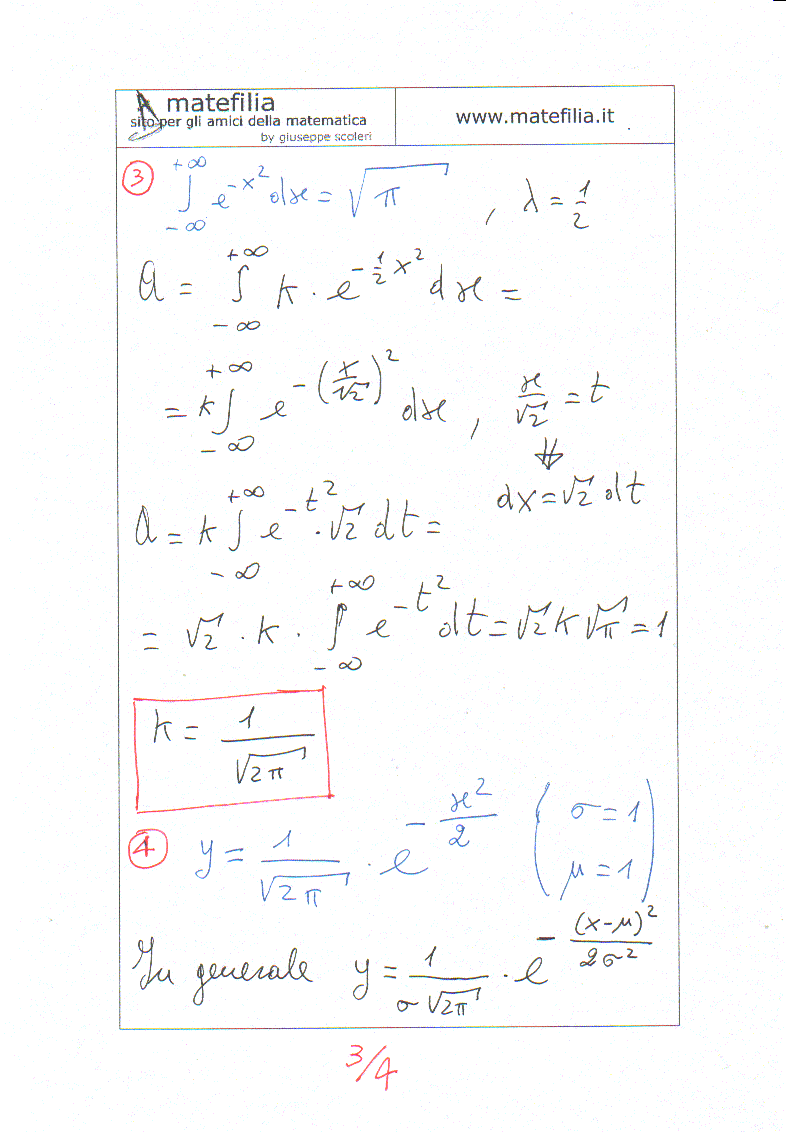 matefilia
sito per gli amici della matematica
by giuseppe scoleri
www.matefilia.it
③ ∫_{-∞}^{+∞} e^{-x²} dx = √π , λ = 1/2
a = ∫_{-∞}^{+∞} k · e^{-1/2 x²} dx =
= k ∫_{-∞}^{+∞} e^{-(x/√2)²} dx , x/√2 = t
⇓
a = k ∫_{-∞}^{+∞} e^{-t²} · √2 dt = dx = √2 dt
= √2 · k · ∫_{-∞}^{+∞} e^{-t²} dt = √2 k √π = 1
k = 1/√2π
④ y = 1/√2π · e^{-x²/2} ( σ = 1
μ = 1 )
In generale y = 1/(σ√2π) · e^{-(x-μ)²/2σ²}
3/4